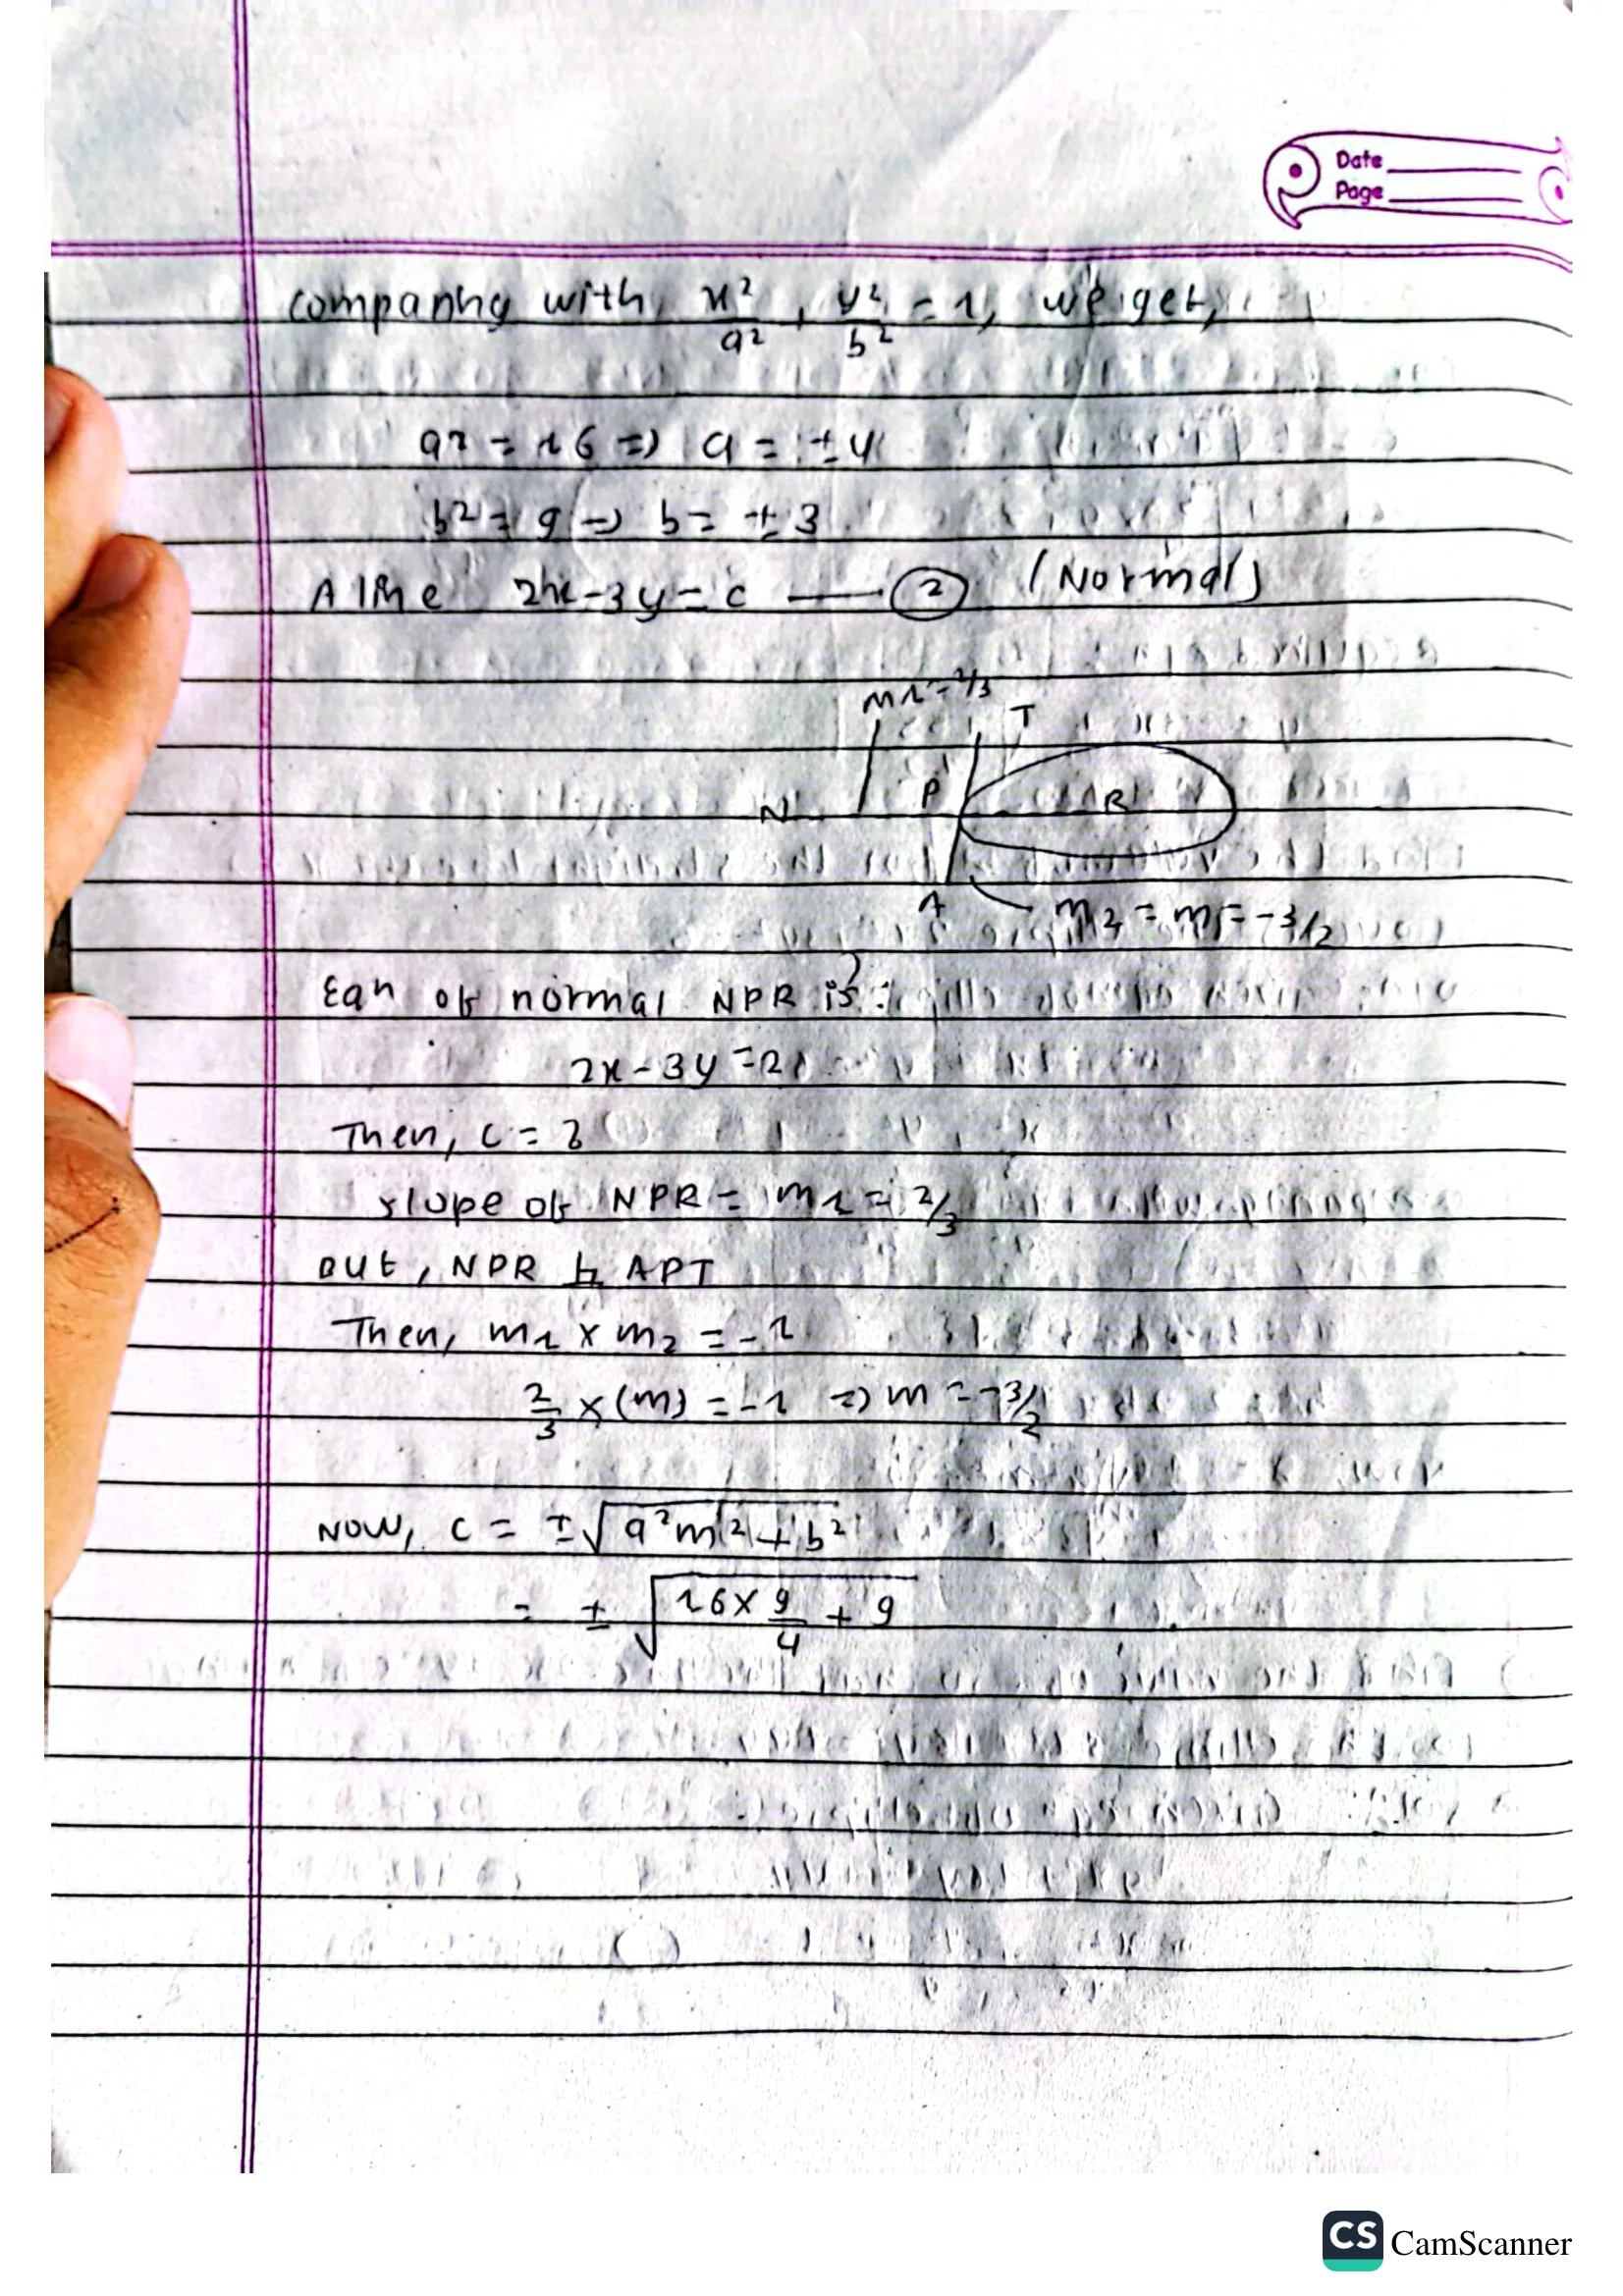 Date
Page
comparing with, x²/a² + y²/b² = 1, we get,
a² = 16 => a = ± 4
b² = 9 => b = ± 3
A line 2x - 3y = c — ② (Normal)
m1 = 2/3
T
N P R
A m2 = m = -3/2
Eqn of normal NPR is:
2x - 3y =
Then, c = ?
slope of NPR = m1 = 2/3
But, NPR ⊥ APT
Then, m1 × m2 = -1
2/3 × (m) = -1 => m = -3/2
Now, c = ± √(a²m² + b²)
= ± √(16 × 9/4 + 9)
CS CamScanner